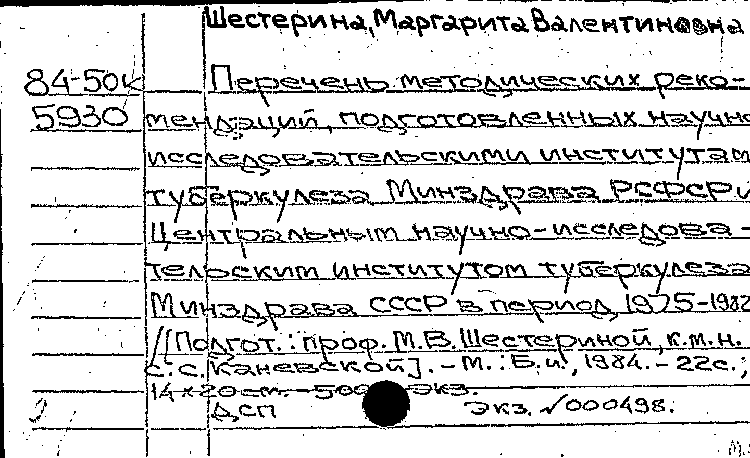 Шестерина, Маргарита Валентиновна
84-50к Перечень методических реко-
5930 мендаций, подготовленных научно
исследовательскими институтам
туберкулеза Минздрава РСФСР и
Центральным научно-исследова-
тельским институтом туберкулеза
Минздрава СССР в период 1975-1982
/[Подгот.: проф. М.В. Шестериной, к.м.н.
с.с. Каневской]. - М.: Б.и., 1984. - 22с.;
14×20 см. - 500 экз.
ДСП экз. √000498.